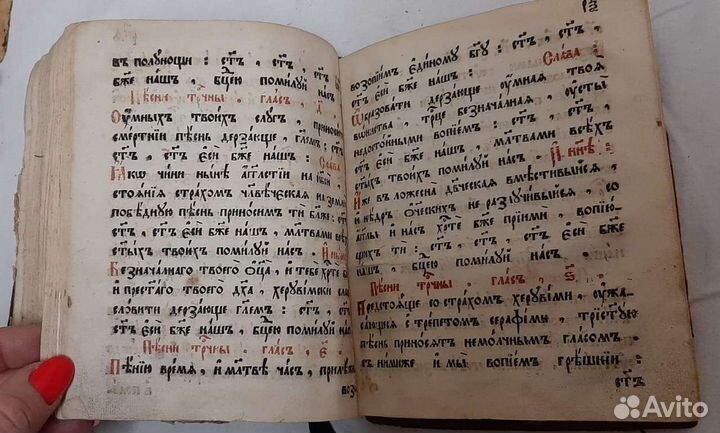 въ полунощи : ст҃ъ , ст҃ъ , ст҃ъ
бж҃е нашъ , бцⷣею помилуй насъ
Пѣсни трⷪ҇чны . гласъ , д҃
Оумныхъ твоихъ слугъ , приносити
смертнїи пѣснь дерзающе , глемъ : ст҃ъ
ст҃ъ , ст҃ъ еси бж҃е нашъ : Слава :
Ꙗко чини нынѣ агг҃льстїи на нб҃си
стоѧнїѧ страхомъ , чл҃вѣческаѧ на земли
побѣдную пѣснь приносим ти бж҃е : ст҃ъ
ст҃ъ , ст҃ъ еси бж҃е нашъ , млт҃вами всѣхъ
ст҃ыхъ твоихъ помилуй насъ . И нынѣ
Безначалнаго твоего оц҃а , и тебе хрⷭ҇те бж҃е
и прест҃аго твоего дх҃а , херувимски сла
словити дерзающе глемъ : ст҃ъ , ст҃ъ
ст҃ъ еси бж҃е нашъ , бцⷣею помилуй насъ
Пѣсни трⷪ҇чны . гласъ , е҃ .
Пѣнїю времѧ , и млт҃вѣ часъ , прилѣжно
воз
возопїимъ единому бг҃у : ст҃ъ , ст҃ъ ,
ст҃ъ еси бж҃е нашъ : Слава :
Ѡбразовати дерзающе , оумнаѧ твоѧ
воинства , трⷪ҇це безначалнаѧ , оусты
недостойными вопїемъ : ст҃ъ , ст҃ъ
ст҃ъ еси бж҃е нашъ , млт҃вами всѣхъ
ст҃ыхъ твоихъ помилуй насъ . И нн҃ѣ :
Иже в ложесна дв҃ческаѧ вместивыйсѧ , и
ѿ нѣдръ оч҃ескихъ не разлучивыйсѧ , со
аг҃глы и насъ хрⷭ҇те бж҃е прїими , вопїю
щихъ ти : ст҃ъ , ст҃ъ , ст҃ъ еси бж҃е
нашъ , бцⷣею помилуй насъ .
Пѣсни трⷪ҇чны , гласъ , ѕ҃
Предстоѧще со страхомъ херувими , оужа
сающесѧ с трепетомъ серафими , трист҃ую
пѣснь приносѧтъ немолчнымъ гласомъ .
с нимиже и мы вопїемъ грѣшнїи :
ст҃ъ
Avito